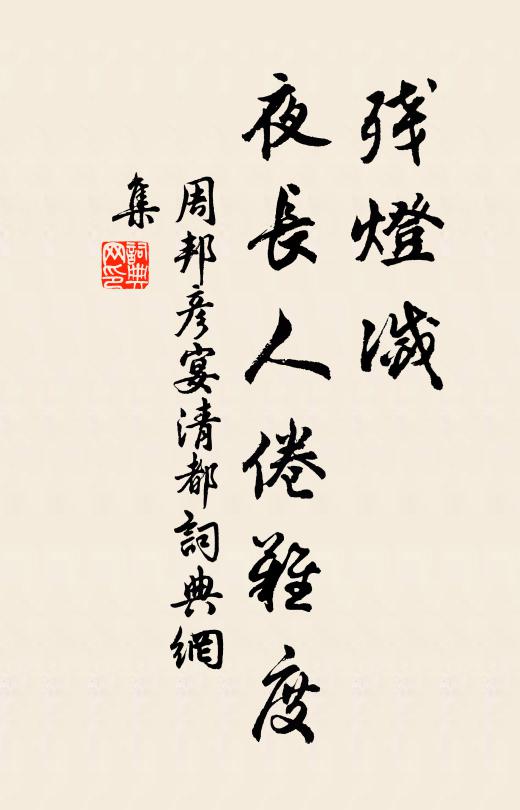 残燈滅
夜長人倦難度
周邦彦宴清都詞典網
集
詞典
网印